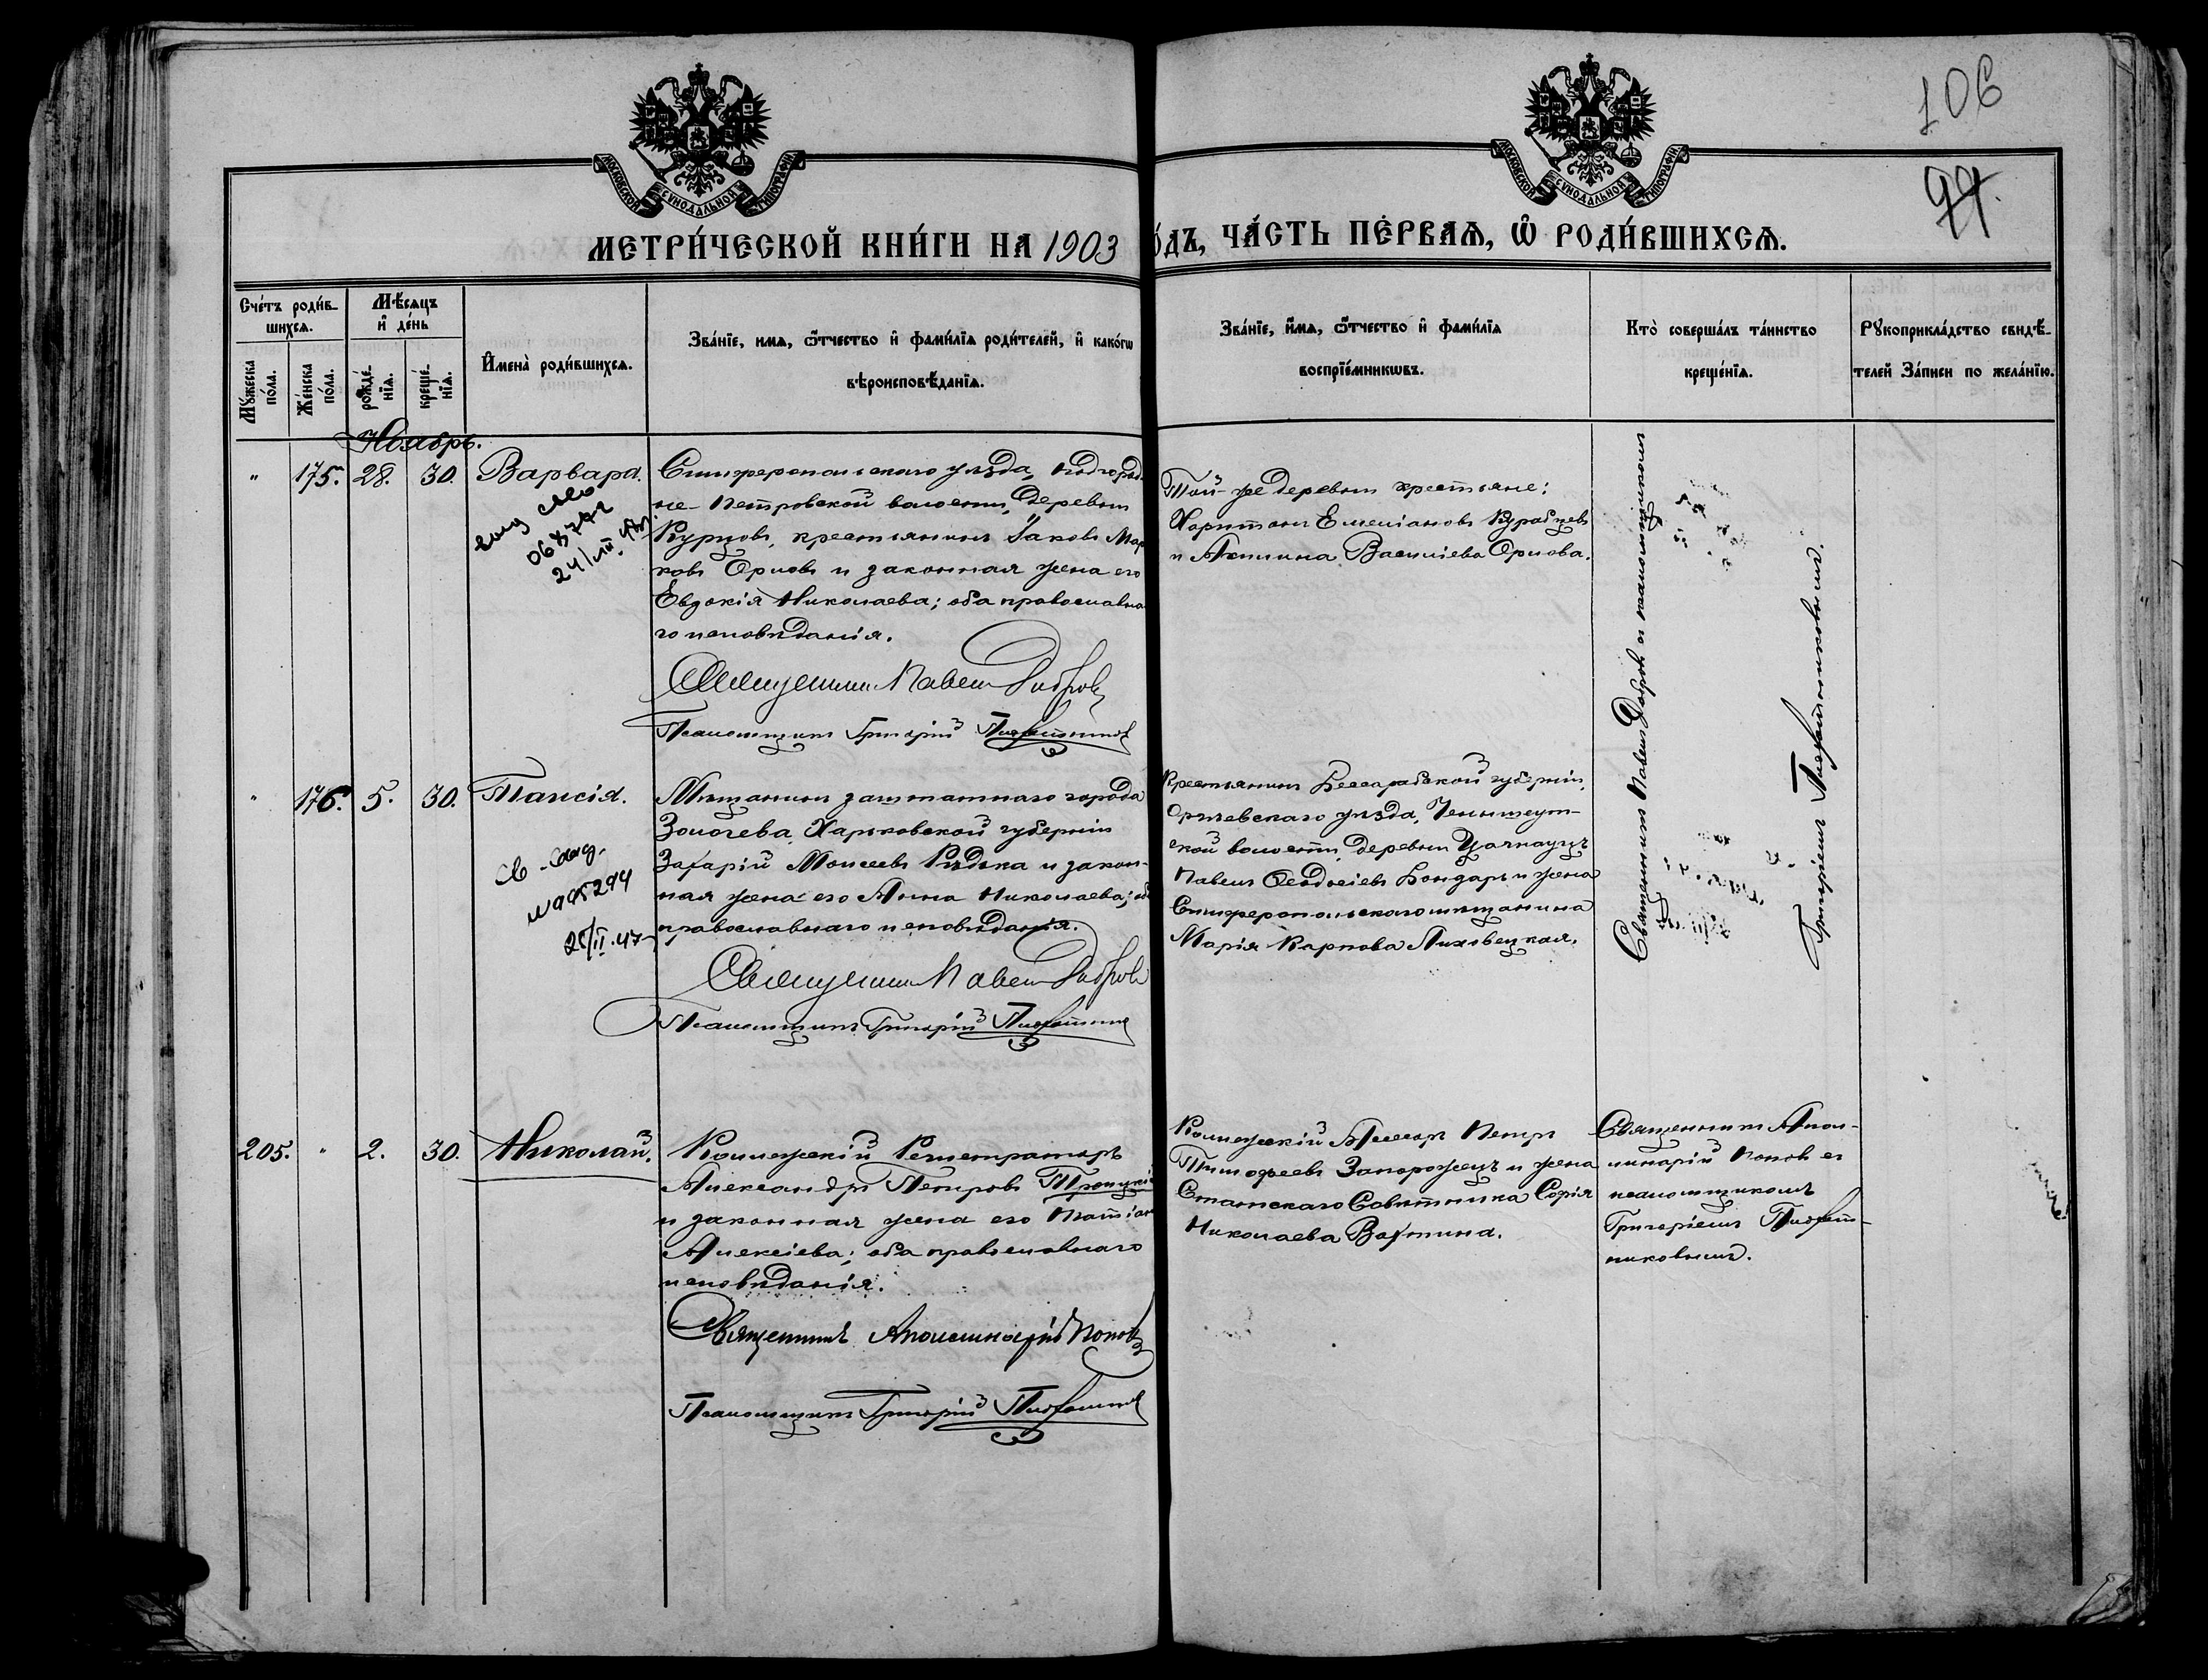 106
99.
МОСКОВСКОЙ СУНОДАЛЬНОЙ ТИПОГРАФІИ
МОСКОВСКОЙ СУНОДАЛЬНОЙ ТИПОГРАФІИ
МЕТРИ́ЧЕСКОЙ КНИ́ГИ НА 1903
ОДЪ, ЧА́СТЬ ПЕ́РВАѦ, Ѡ РОДИ́ВШИХСѦ.
Сче́тъ роди́в-
шихсѧ.
Мꙋ́жеска по́ла.
Же́нска по́ла.
Мѣ́сѧцъ
и҆ де́нь
рожде́-
нїѧ.
креще́-
нїѧ.
И҆мена̀ роди́вшихсѧ.
Зва́нїе, имѧ, ѻ҆́тчество и҆ фами́лїѧ роди́телей, и҆ како́гѡ
вѣроисповѣ́данїѧ.
Зва́нїе, и҆́мѧ, ѻ҆́тчество и҆ фами́лїѧ
воспрїе́мникѡвъ.
Кто̀ соверша́лъ та́инство
креще́нїѧ.
Рꙋкоприкла́дство свидѣ́-
телей За́писи по жела́нїю.
Ноябрь.
" 175. 28. 30. Варвара.
Симферопольскаго уѣзда, Подгород-
не-Петровской волости, деревни
Курцовъ, крестьянинъ Іаковъ Мар
ковъ Орловъ и законная жена его
Евдокія Николаева; оба православна
го исповѣданія.
Священникъ Павелъ Добровъ
Псаломщикъ Григорій Плехотниковъ
Той-же деревни крестьяне:
Харитонъ Емеліановъ Курабцевъ
и Акилина Василіева Орлова.
Священникъ Павелъ Добровъ съ псаломщикомъ
Григоріемъ
" 176. 5. 30. Таисія.
св-во
21/II.47
Мѣщанинъ заштатнаго города
Золочева, Харьковской губерніи
Захарій Моисеевъ Рѣдька и закон-
ная жена его Анна Николаева; об
православнаго исповѣданія.
Священникъ Павелъ Добровъ
Псаломщикъ Григорій
Крестьянинъ Бессарабской губерніи,
Оргѣевскаго уѣзда,
ской волости, деревни
Павелъ Ѳеодосіевъ Бондарь и жена
Симферопольскаго мѣщанина
Марія Карпова Лиховецкая.
205. " 2. 30. Николай.
Коллежскій Регистраторъ
Александръ Петровъ Троицкій
и законная жена его
Алексіева; оба православнаго
исповѣданія.
Священникъ Аполлинарій Поповъ
Псаломщикъ Григорій
Коллежскій Ассесоръ Петръ
Тимоѳеевъ Запорожецъ и жена
Статскаго Совѣтника Софія
Николаева Вахтина.
Священникъ Апол-
линарій Поповъ съ
псаломщикомъ
Григоріемъ